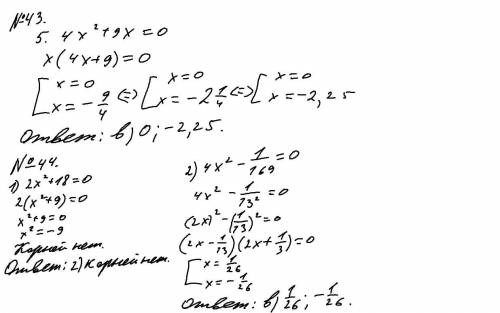 №43.
5. 4x²+9x=0
x(4x+9)=0
[x=0 x=-9/4 (=) [x=0 x=-2 1/4 (=) [x=0 x=-2,25
Ответ: в) 0; -2,25.
№44.
1) 2x²+18=0
2(x²+9)=0
x²+9=0
x²=-9
Корней нет.
Ответ: г) Корней нет.
2) 4x² - 1/169 = 0
4x² - 1/13² = 0
(2x)² - (1/13)² = 0
(2x - 1/13)(2x + 1/3) = 0
[x = 1/26
x = -1/26
Ответ: в) 1/26; -1/26.